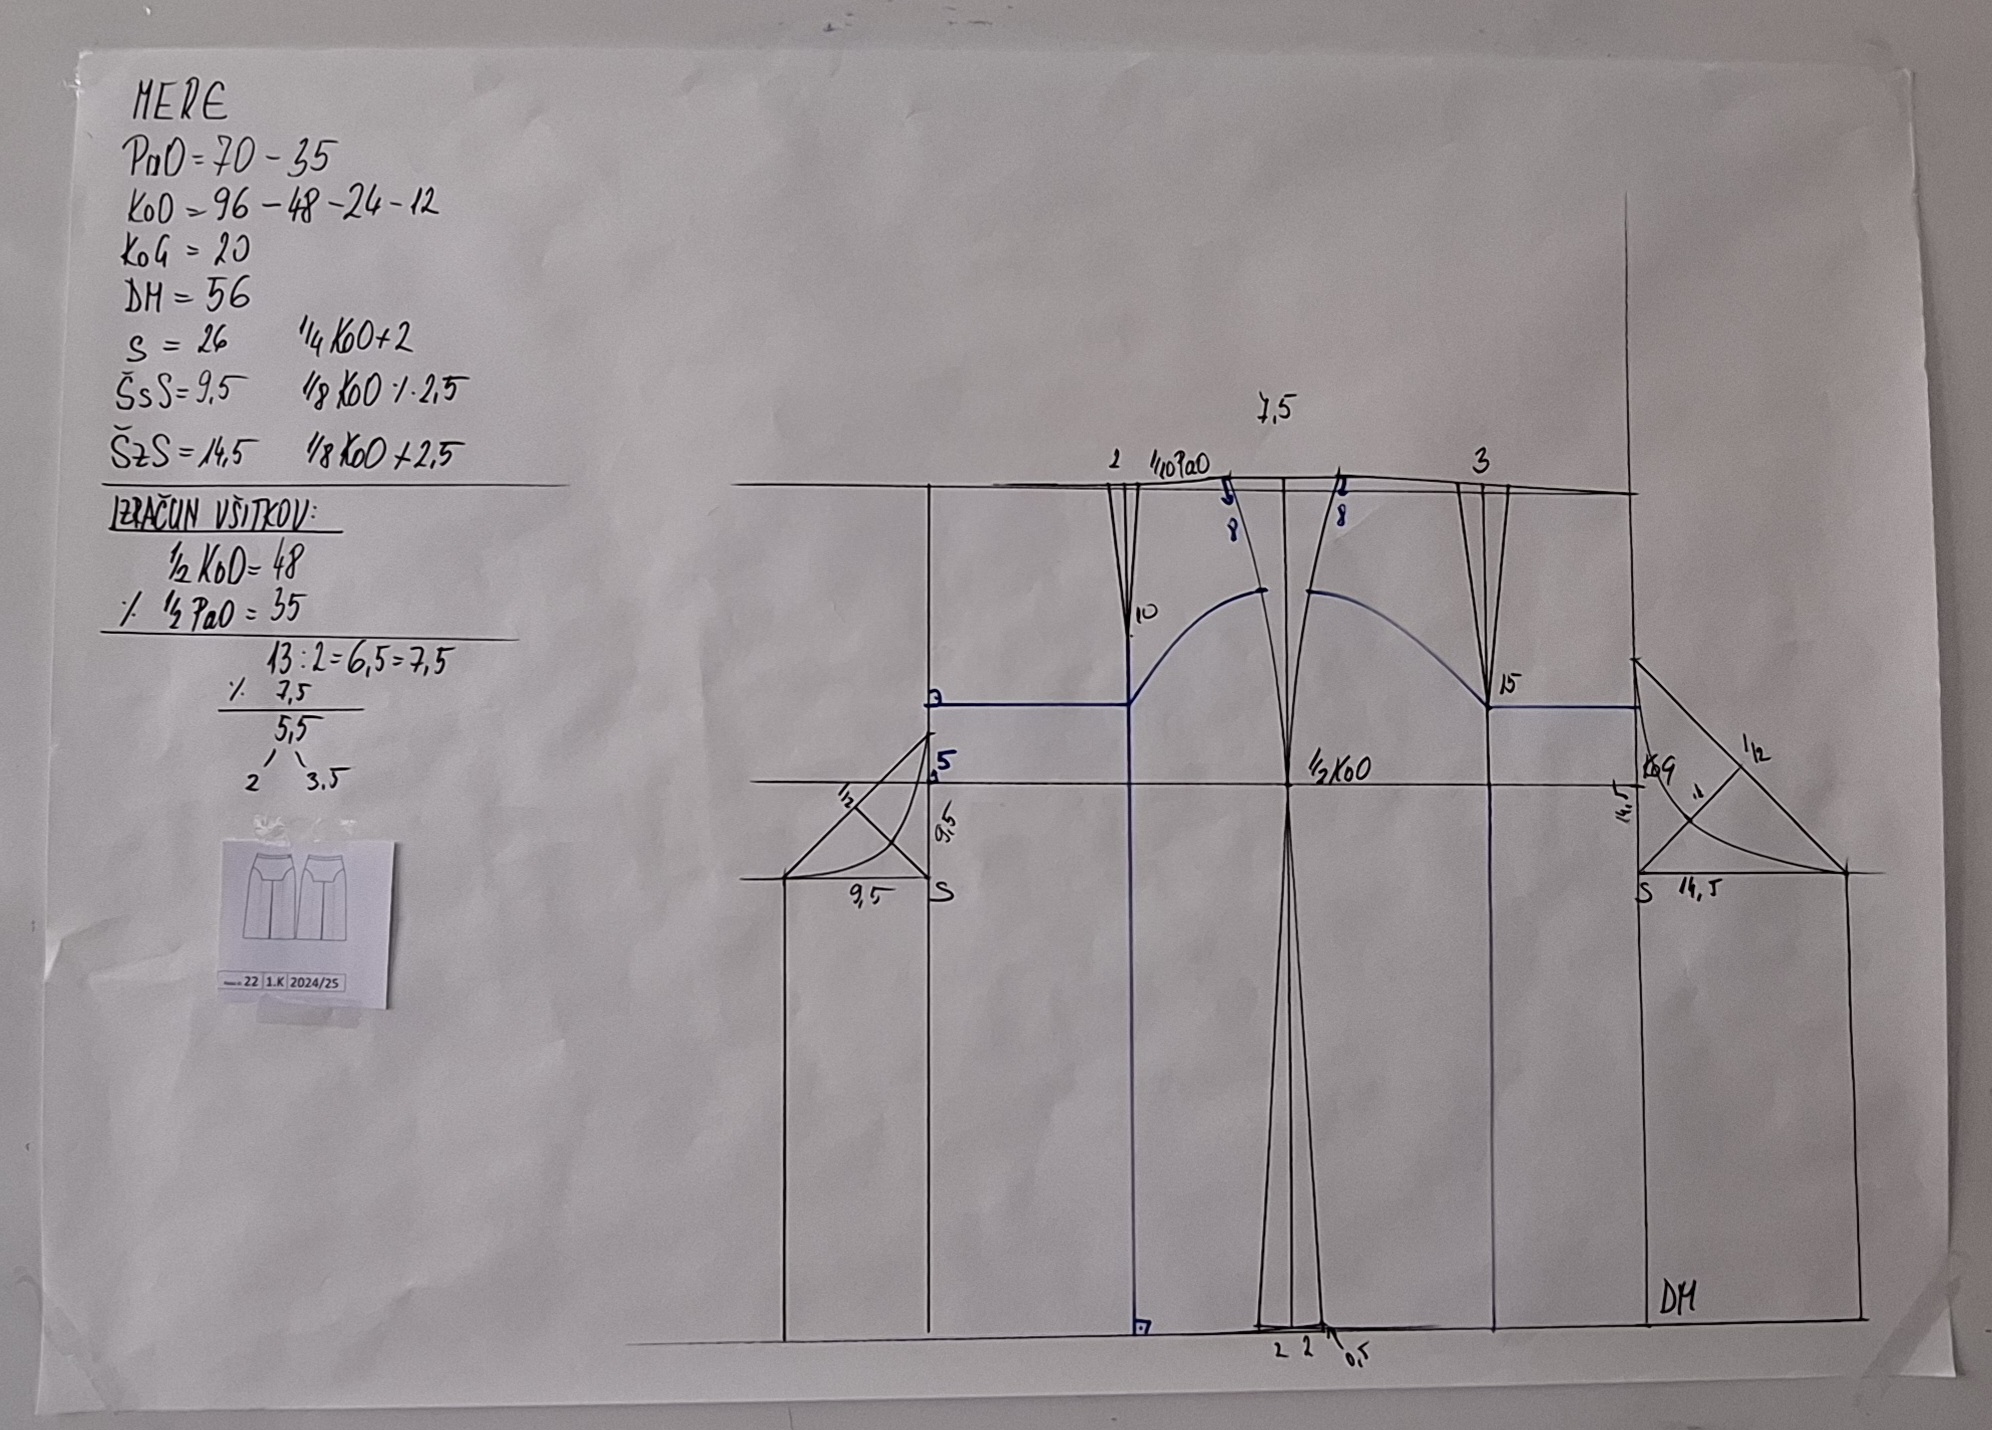 MERE
PaO = 70 - 35
KoO = 96 - 48 - 24 - 12
KoG = 20
DM = 56
S = 26 1/4 KoO + 2
ŠsS = 9,5 1/8 KoO ·/· 2,5
ŠzS = 14,5 1/8 KoO + 2,5
IZRAČUN VŠITKOV:
1/2 KoO = 48
·/· 1/2 PaO = 35
13 : 2 = 6,5 = 7,5
·/· 7,5
5,5
2 3,5
22 1.K 2024/25
7,5
2 1/10 PaO 3
8 8
10
15
5
1/2 KoO
KoG
1/2
1/2
9,5
14,5
9,5 S
S 14,5
DM
2 2 0,5